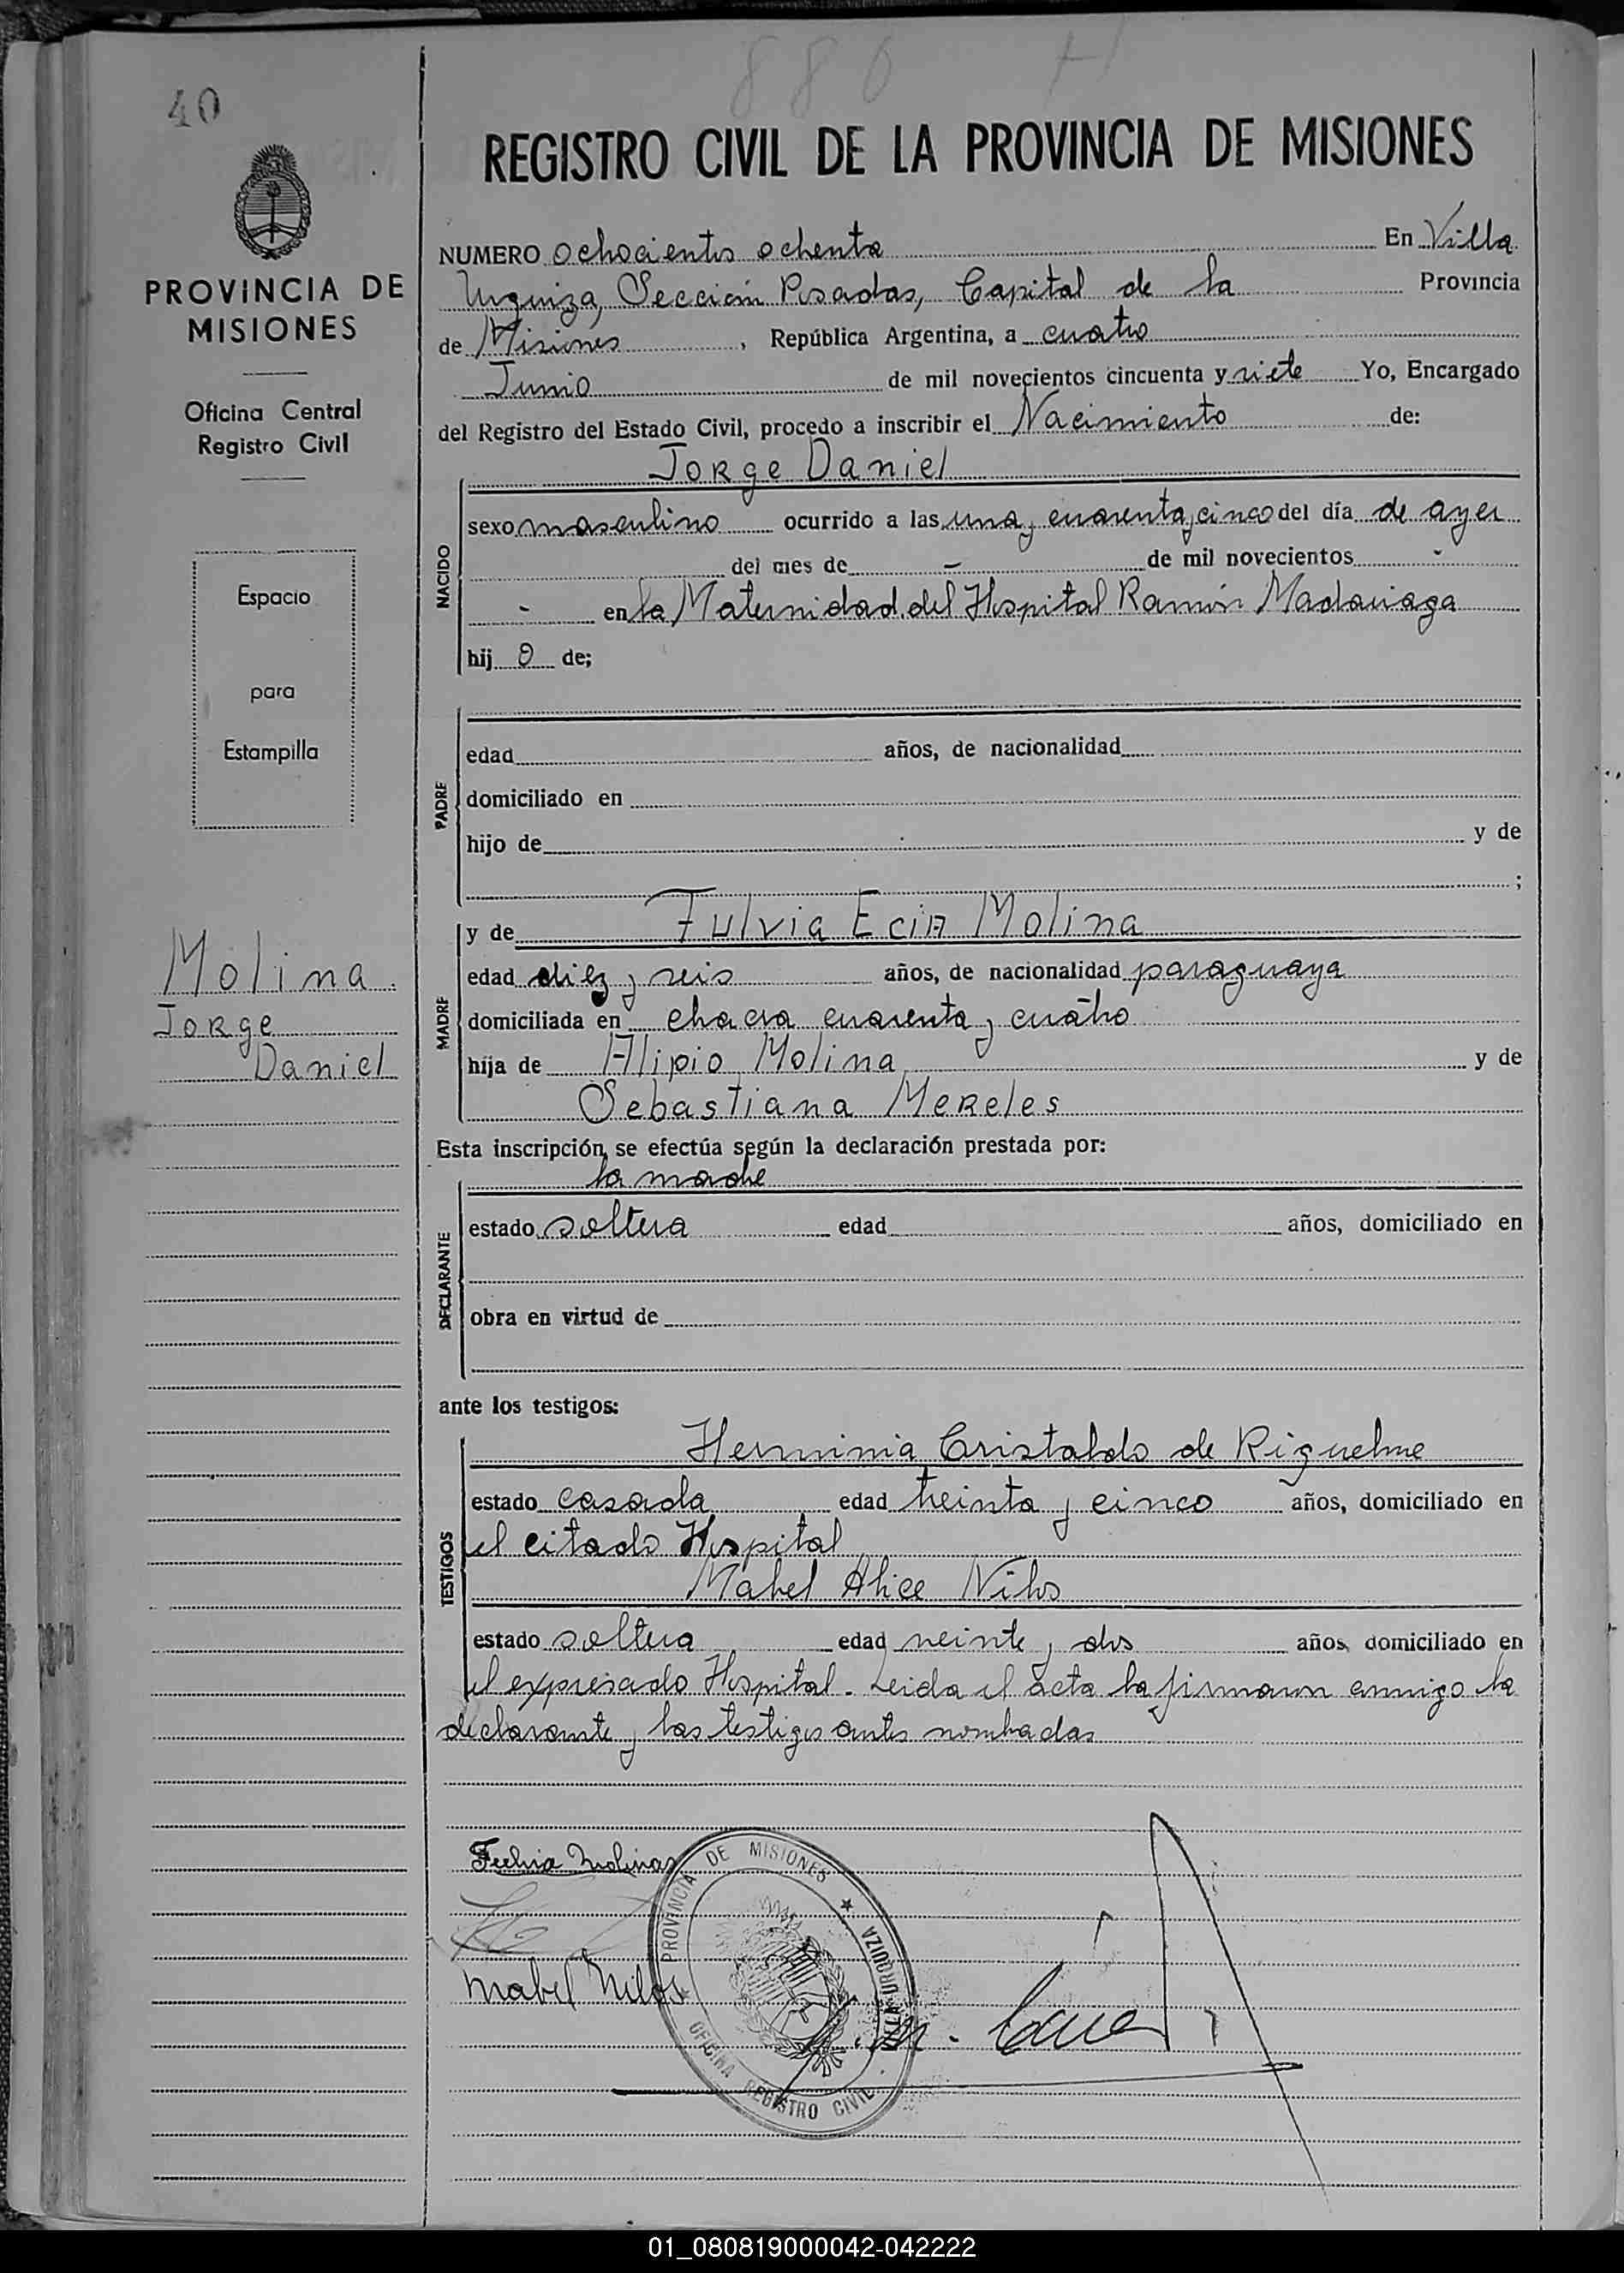 880 H
40
REGISTRO CIVIL DE LA PROVINCIA DE MISIONES
PROVINCIA DE
MISIONES
Oficina Central
Registro Civil
Espacio
para
Estampilla
Molina
Jorge
Daniel
NUMERO ochocientos ochenta En Villa
Urquiza, Sección Posadas, Capital de la Provincia
de Misiones, República Argentina, a cuatro
Junio de mil novecientos cincuenta y siete Yo, Encargado
del Registro del Estado Civil, procedo a inscribir el Nacimiento de:
Jorge Daniel
NACIDO
sexo masculino ocurrido a las una y cuarenta y cinco del día de ayer
del mes de - de mil novecientos -
- en la Maternidad del Hospital Ramón Madariaga
hij o de;
PADRE
edad años, de nacionalidad
domiciliado en
hijo de y de
;
MADRE
y de Fulvia Ecia Molina
edad diez y seis años, de nacionalidad paraguaya
domiciliada en chacra cuarenta y cuatro
hija de Alipio Molina y de
Sebastiana Mereles
Esta inscripción se efectúa según la declaración prestada por:
la madre
DECLARANTE
estado soltera edad años, domiciliado en
obra en virtud de
ante los testigos:
TESTIGOS
Herminia Cristaldo de Riquelme
estado casada edad treinta y cinco años, domiciliado en
el citado Hospital
Mabel Alice Nilos
estado soltera edad veinte y dos años domiciliado en
el expresado Hospital. Leida el acta la firmaron conmigo la
declarante y las testigos antes nombradas
Fulvia Molinas
Mabel Nilos
PROVINCIA DE MISIONES ★ VILLA URQUIZA
OFICINA REGISTRO CIVIL
01_080819000042-042222